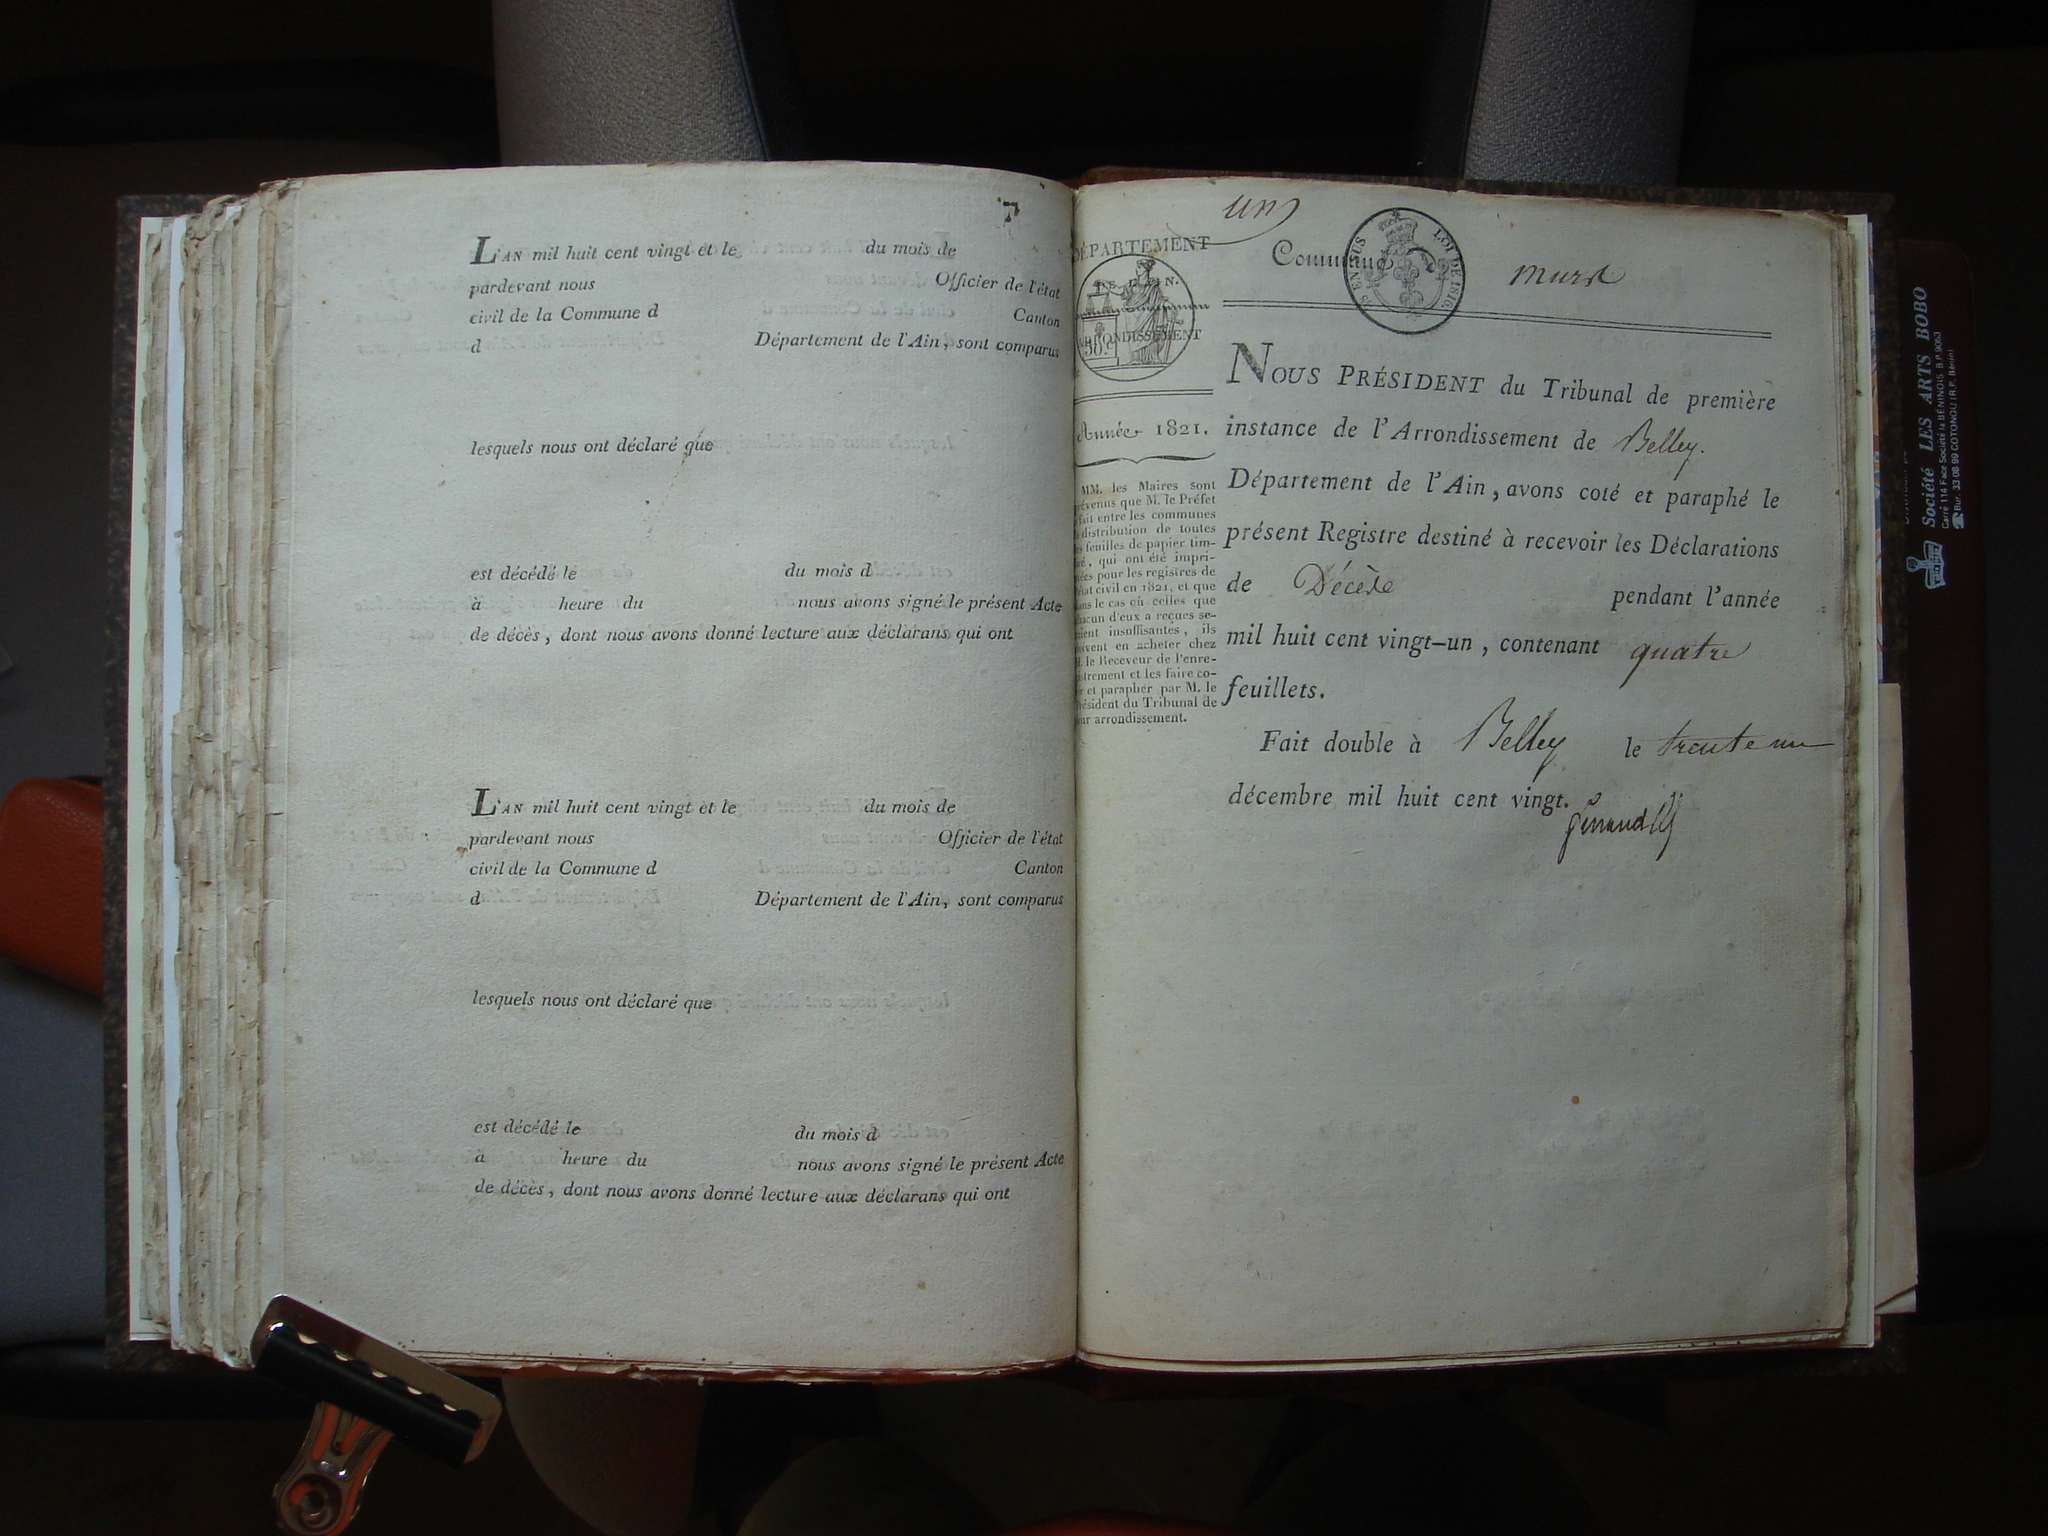 L'AN mil huit cent vingt et le du mois de
pardevant nous Officier de l'état
civil de la Commune d Canton
d Département de l'Ain, sont comparus
lesquels nous ont déclaré que
est décédé le du mois d
à heure du nous avons signé le présent Acte
de décès, dont nous avons donné lecture aux déclarans qui ont
L'AN mil huit cent vingt et le du mois de
pardevant nous Officier de l'état
civil de la Commune d Canton
d Département de l'Ain, sont comparus
lesquels nous ont déclaré que
est décédé le du mois d
à heure du nous avons signé le présent Acte
de décès, dont nous avons donné lecture aux déclarans qui ont
un
DÉPARTEMENT
DE L'AIN.
ARRONDISSEMENT
50c
Année 1821.
MM. les Maires sont
prévenus que M. le Préfet
fait entre les communes
distribution de toutes
feuilles de papier tim-
, qui ont été impri-
mées pour les registres de
l'état civil en 1821, et que
dans le cas où celles que
chacun d'eux a reçues se-
roient insuffisantes, ils
doivent en acheter chez
M. le Receveur de l'enre-
gistrement et les faire co-
ter et parapher par M. le
Président du Tribunal de
leur arrondissement.
Commune
EN SUS
LOI DE 1816
NOUS PRÉSIDENT du Tribunal de première
instance de l'Arrondissement de Belley.
Département de l'Ain, avons coté et paraphé le
présent Registre destiné à recevoir les Déclarations
de Décès pendant l'année
mil huit cent vingt-un, contenant quatre
feuillets.
Fait double à Belley le trente un
décembre mil huit cent vingt.
Société LES ARTS BOBO
Carré 114 Face Société la BÉNINOIS B.P. 9063
Bur. 33 08 99 COTONOU (R.P. Bénin)